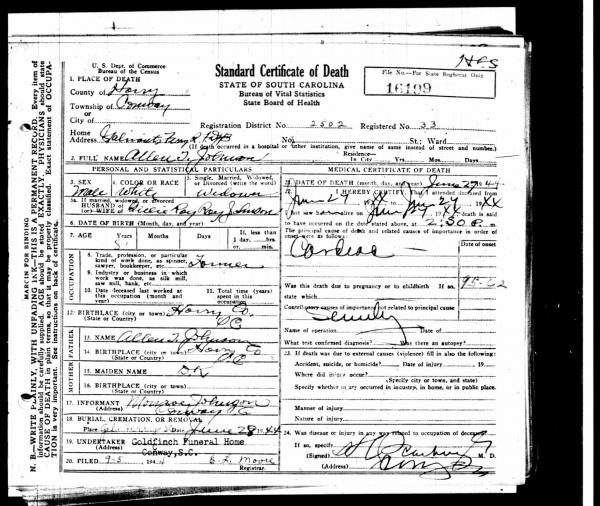 Yes
U. S. Dept. of Commerce
Bureau of the Census
Standard Certificate of Death
STATE OF SOUTH CAROLINA
Bureau of Vital Statistics
State Board of Health
File No.—For State Registrar Only
16199
1. PLACE OF DEATH
County of Horry
Township of Conway
or
City of
Registration District No. 2502 Registered No. 33
Home
Address
No. St.; Ward
(If death occurred in a hospital or other institution, give name of same instead of street and number.)
Residence—
In City Yrs. Mos. Days
2. FULL NAME Allen T. Johnson
PERSONAL AND STATISTICAL PARTICULARS
3. SEX Male
4. COLOR OR RACE White
5. Single, Married, Widowed, or Divorced (write the word) Widown
5a. If married, widowed, or divorced
HUSBAND of
(or) WIFE of Ray Johnson
6. DATE OF BIRTH (Month, day, and year)
7. AGE Years Months Days If less than 1 day, hrs. or min.
OCCUPATION
8. Trade, profession, or particular kind of work done, as spinner, sawyer, bookkeeper, etc. Farmer
9. Industry or business in which work was done, as silk mill, saw mill, bank, etc.
10. Date deceased last worked at this occupation (month and year)
11. Total time (years) spent in this occupation
12. BIRTHPLACE (City or town) Horry Co.
(State or Country) SC
FATHER
13. NAME Allen T. Johnson
14. BIRTHPLACE (city or town) Horry Co
(State or Country) SC
MOTHER
15. MAIDEN NAME DK
16. BIRTHPLACE (city or town)
(State or Country)
17. INFORMANT Monroe Johnson
(Address) Conway SC
18. BURIAL, CREMATION, OR REMOVAL
Place Date June 28 1944
19. UNDERTAKER Goldfinch Funeral Home
(Address) Conway, S.C.
20. FILED 9-5 1944 Moore
Registrar.
MEDICAL CERTIFICATE OF DEATH
21. DATE OF DEATH (month, day, and year) June 27 1944
22. I HEREBY CERTIFY, That I attended deceased from
I last saw h alive on death is said
to have occurred on the date stated above, at 2:30 P. m.
The principal cause of death and related causes of importance in order of onset were as follows:
Date of onset
Cardiac
Was this death due to pregnancy or to childbirth?
state which
Contributory causes of importance not related to principal cause
Senility
Name of operation Date of
What test confirmed diagnosis? Was there an autopsy?
23. If death was due to external causes (violence) fill in also the following:
Accident, suicide, or homicide? Date of injury 19
Where did injury occur?
(Specify city or town, and State)
Specify whether injury occurred in industry, in home, or in public place.
Manner of injury
Nature of injury
24. Was disease or injury in any way related to occupation of deceased?
If so, specify
(Signed) M. D.
(Address)
MARGIN FOR BINDING
N. B.—WRITE PLAINLY, WITH UNFADING INK—THIS IS A PERMANENT RECORD. Every item of
information should be carefully supplied. AGE should be stated EXACTLY. PHYSICIANS should state
CAUSE OF DEATH in plain terms, so that it may be properly classified. Exact statement of OCCUPA-
TION is very important. See instructions on back of certificate.